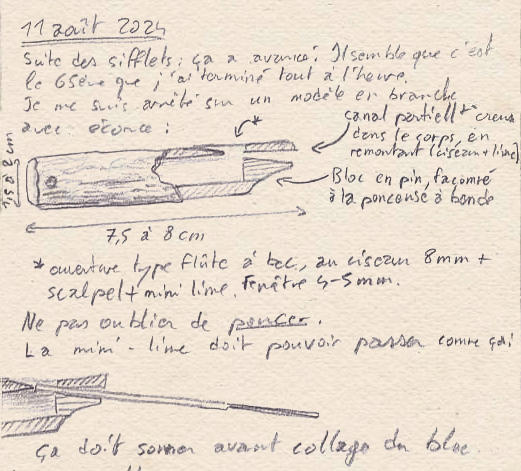 11 août 2024
Suite des sifflets : ça a avancé. Il semble que c'est
le 65ème que j'ai terminé tout à l'heure.
Je me suis arrêté sur un modèle en branche
avec écorce :
*
canal partiellᵗ creusé
dans le corps, en
remontant (ciseau + lime)
Bloc en pin, façonné
à la ponceuse à bande
1,5 à 2 cm
7,5 à 8 cm
* ouverture type flûte à bec, au ciseau 8mm +
scalpel + mini lime. Fenêtre 4-5mm.
Ne pas oublier de poncer.
La mini-lime doit pouvoir passer comme ça :
ça doit sonner avant collage du bloc.